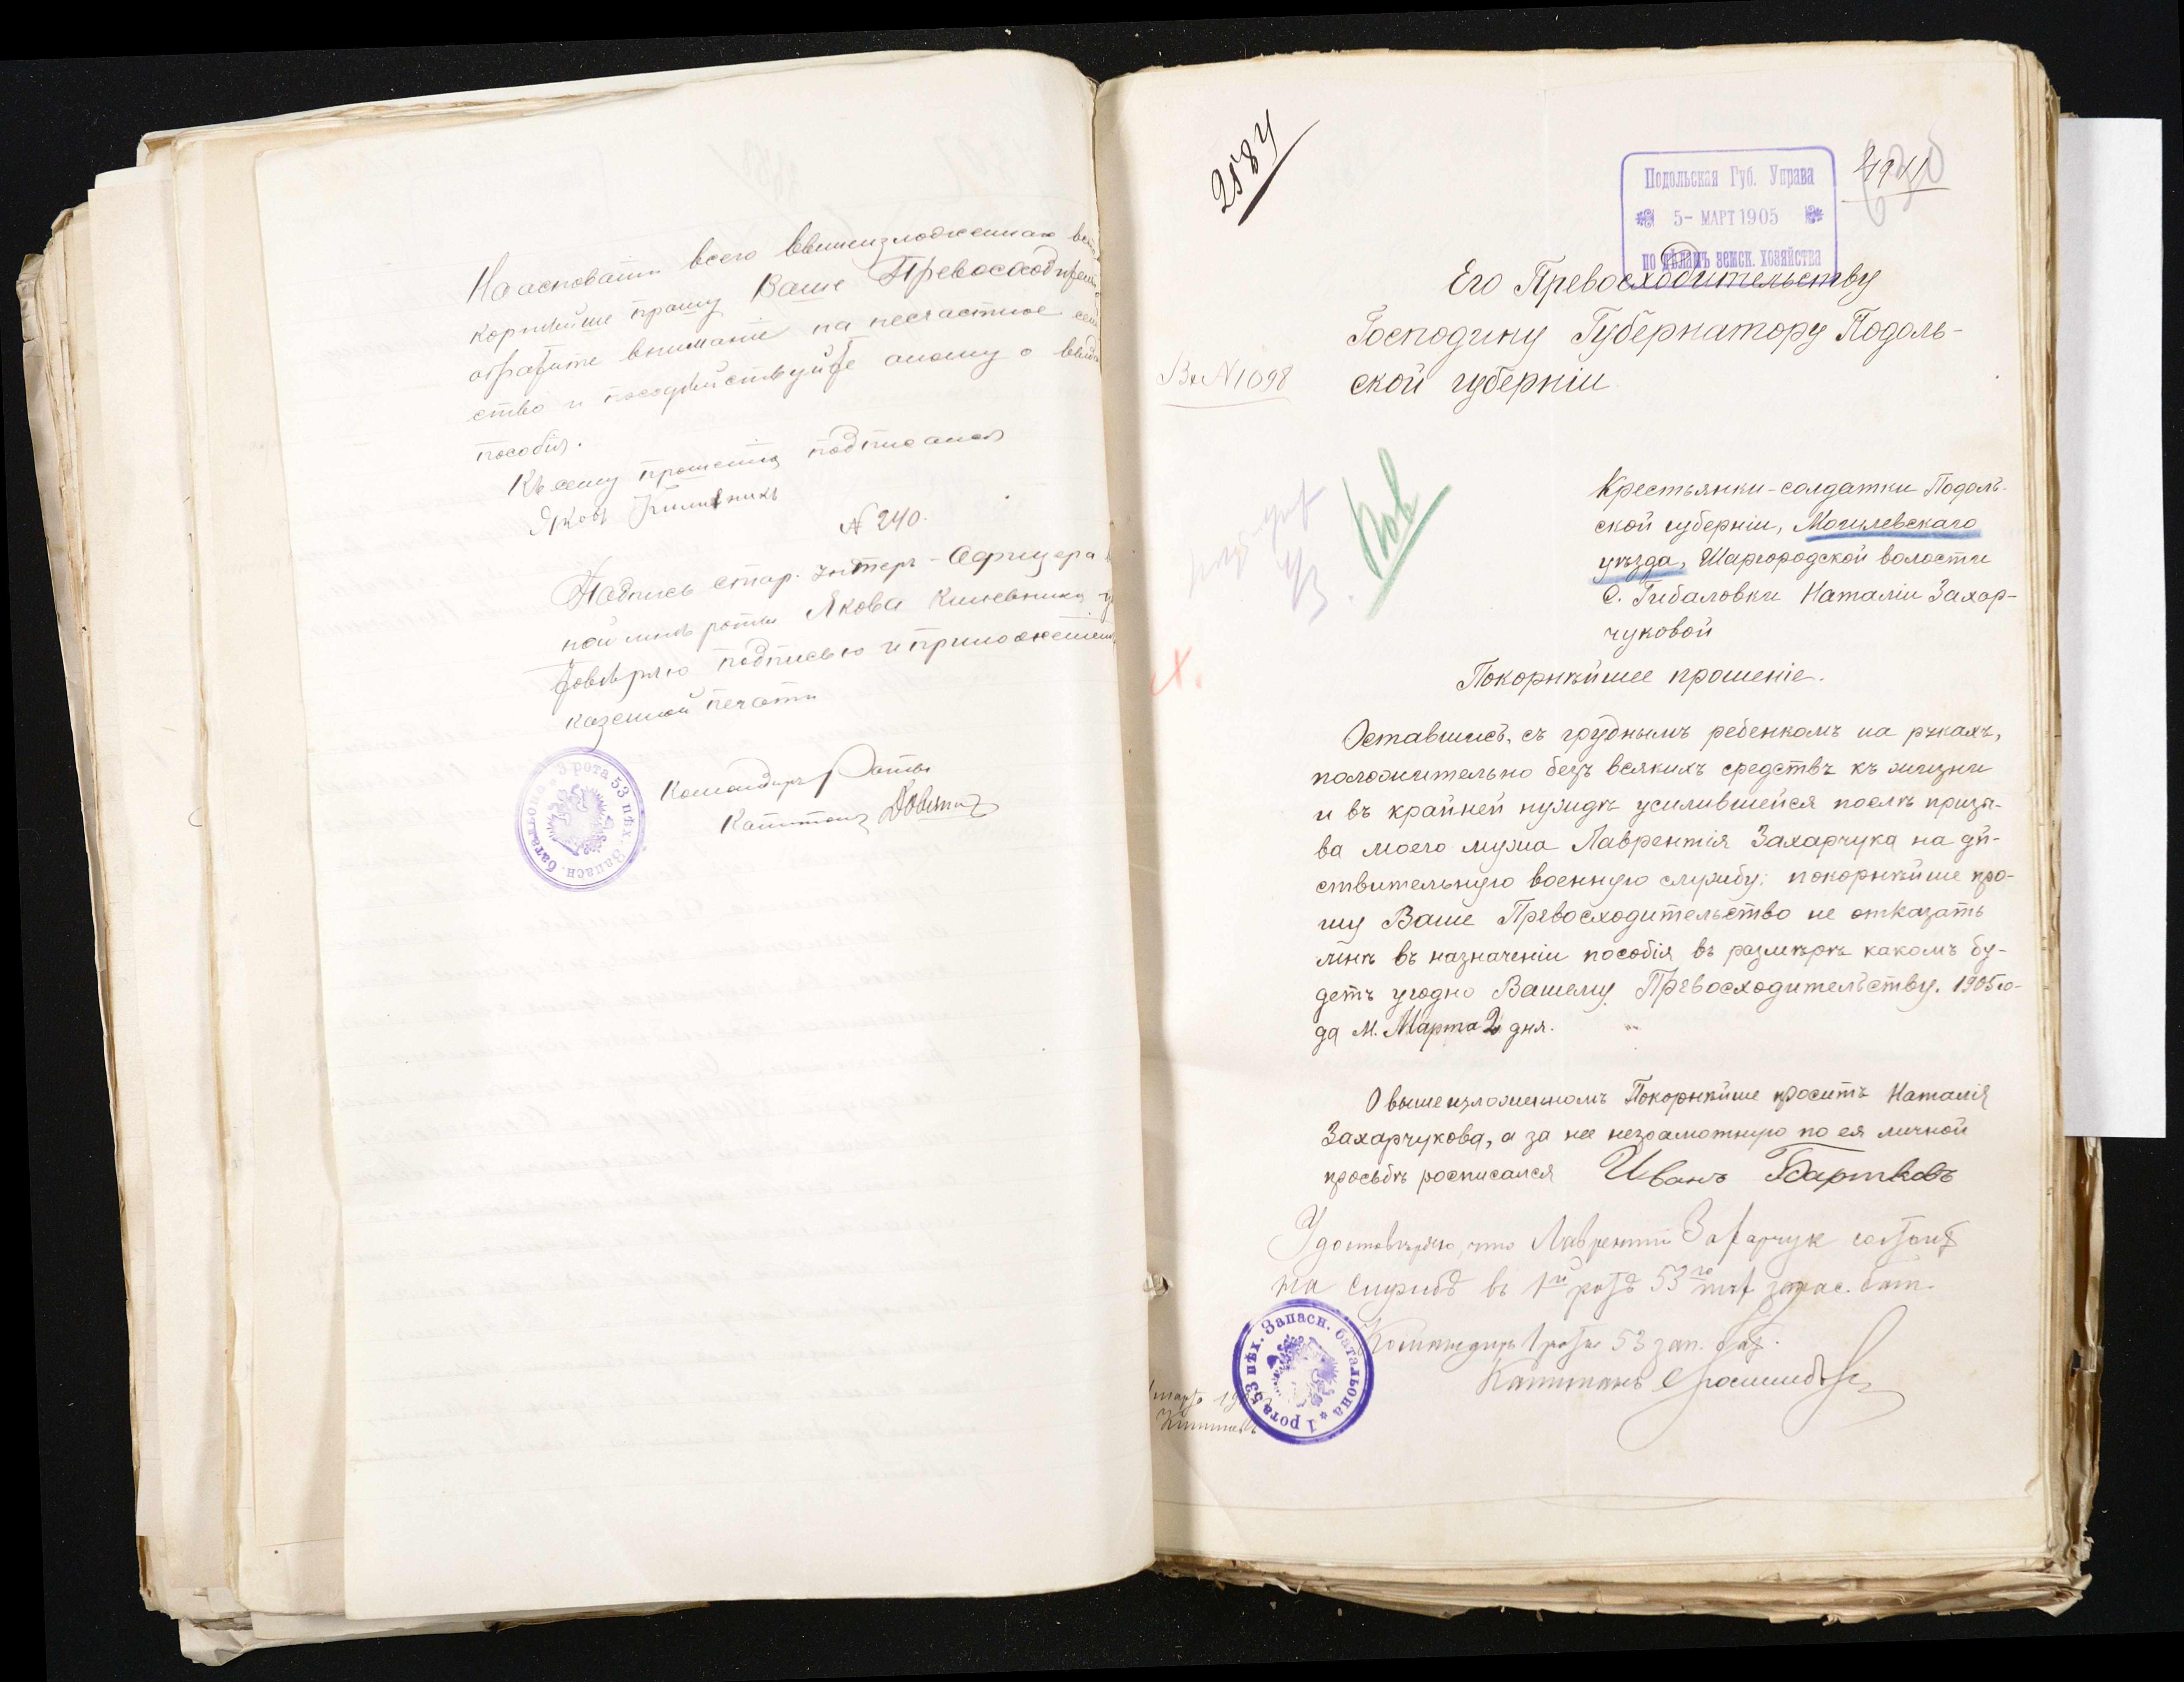 На основании всего вышеизложеннаго
корнейше прошу Ваше Превосходитель
обратите внимание на несчастное сем
ство и посодействуйте оному о выда
пособія.
Къ сему прошенію подписался
Яковъ
№ 240.
Подпись стар. унтеръ-Офицера
роты Якова
печати
Командиръ Роты
Капитанъ
3 рота 53 пѣх. Запасн. батальона
2584
Подольская Губ. Управа
5- МАРТ 1905
по дѣламъ земск. хозяйства
Его Превосходительству
Господину Губернатору Подоль-
ской губерніи
Вх №1098
Крестьянки-солдатки Подоль-
ской губерніи, Могилевскаго
уѣзда, Шаргородской волости
С. Гибаловки Наталіи Захар-
чуковой
Покорнѣйшее прошеніе.
Оставшись, съ груднымъ ребенкомъ на рукахъ,
положительно безъ всякихъ средствъ къ жизни
и въ крайней нуждѣ усилившейся послѣ призы-
ва моего мужа Лаврентія Захарчука на дѣй-
ствительную военную службу; покорнѣйше про-
шу Ваше Превосходительство не отказать
мнѣ въ назначеніи пособія въ размѣрѣ какомъ бу-
детъ угодно Вашему Превосходительству. 1905 го-
да М. Марта 2 дня.
О вышеизложенномъ Покорнѣйше проситъ Наталія
Захарчукова, а за нее неграмотную по ея личной
просьбѣ росписался Иванъ Бартковъ
Удостовѣряю, что Лаврентій Захарчук состоит
на службѣ въ 1й ротѣ 53го пѣх запас. бат.
Командиръ 1 роты 53 зап. бат.
Капитанъ
1 рота 53 пѣх. Запасн. батальона